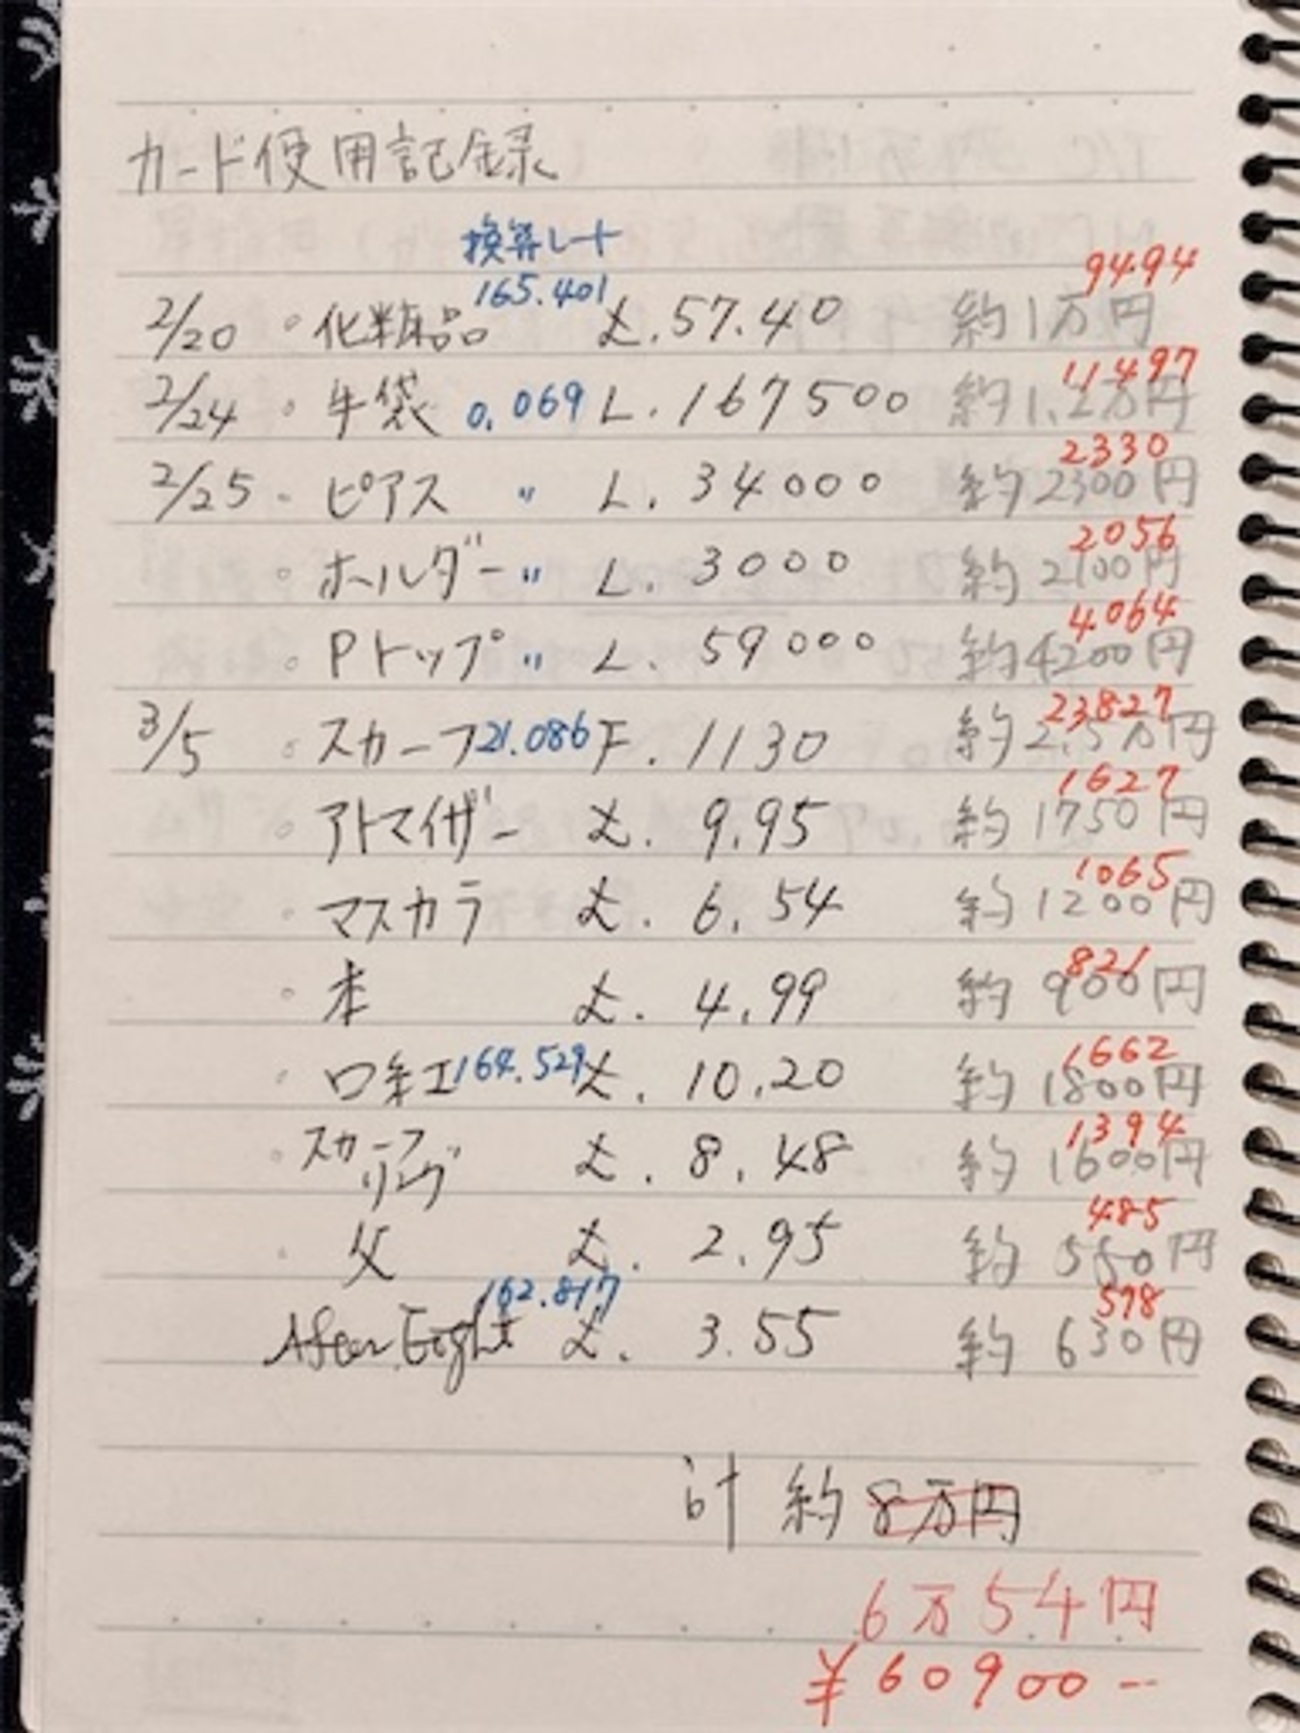 カード使用記録
換算レート
9494
2/20 ・化粧品 165.401 £.57.40 約1万円
11497
2/24 ・手袋 0.069 L.167500 約1.2万円
2330
2/25 ・ピアス 〃 L.34000 約2300円
2056
・ホルダー 〃 L.3000 約2100円
4064
・Pトップ 〃 L.59000 約4200円
23827
3/5 ・スカーフ 21.086 F.1130 約2.5万円
1627
・アトマイザー £.9.95 約1750円
1065
・マスカラ £.6.54 約1200円
821
・本 £.4.99 約900円
1662
・口紅 164.529 £.10.20 約1800円
1394
・スカーフリング £.8.48 約1600円
485
・父 £.2.95 約550円
162.817 578
After Eight £.3.55 約630円
計 約8万円
6万54円
¥60900-